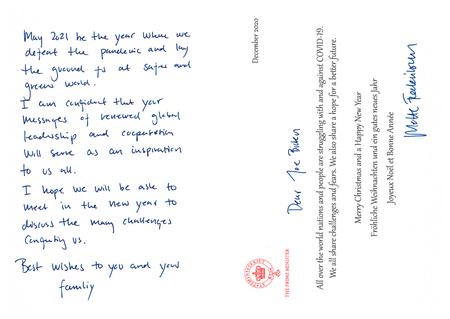 May 2021 be the year where we
defeat the pandemic and lay
the ground at safer and
greener world.
I am confident that your
messages of renewed global
leadership and cooperation
will serve as an inspiration
to us all.
I hope we will be able to
meet in the new year to
discuss the many challenges
us.
Best wishes to you and your
family
THE PRIME MINISTER
December 2020
Dear Joe Biden
All over the world nations and people are struggling with and against COVID-19.
We all share challenges and fears. We also share a hope for a better future.
Merry Christmas and a Happy New Year
Fröhliche Weihnachten und ein gutes neues Jahr
Joyeux Noël et Bonne Année
Mette Frederiksen